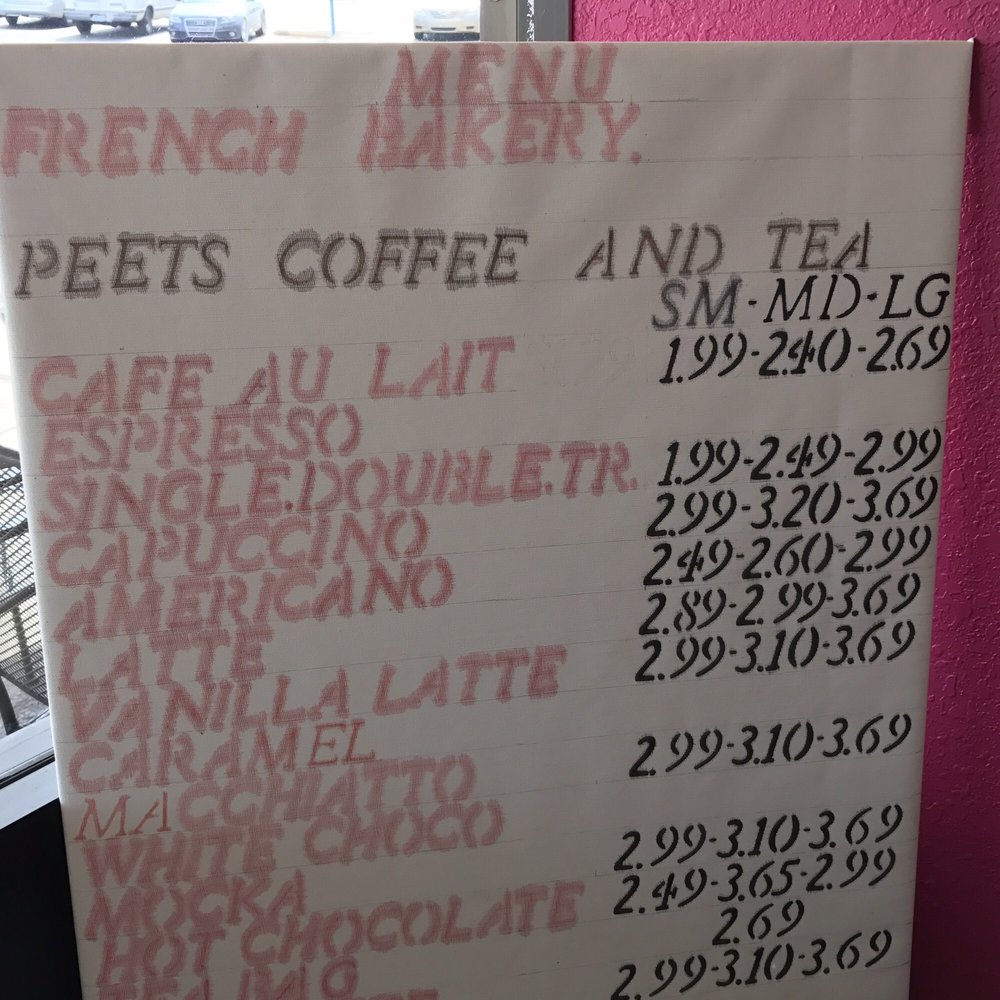 MENU
FRENCH BAKERY.
PEETS COFFEE AND TEA
SM-MD-LG
CAFE AU LAIT 1.99-2.40-2.69
ESPRESSO
SINGLE.DOUBLE.TR. 1.99-2.49-2.99
CAPUCCINO 2.99-3.20-3.69
AMERICANO 2.49-2.60-2.99
LATTE 2.89-2.99-3.69
VANILLA LATTE 2.99-3.10-3.69
CARAMEL
MACCHIATTO 2.99-3.10-3.69
WHITE CHOCO
MOCKA 2.99-3.10-3.69
HOT CHOCOLATE 2.49-3.65-2.99
2.69
2.99-3.10-3.69